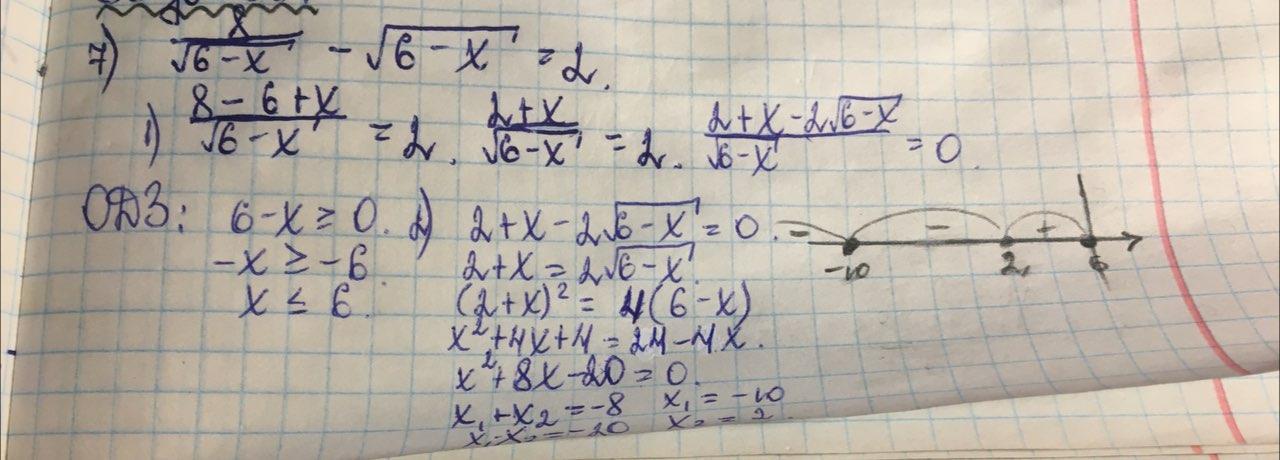 7) 8/√(6-x) - √(6-x) = 2.
1) (8-6+x)/√(6-x) = 2. (2+x)/√(6-x) = 2. (2+x-2√(6-x))/√(6-x) = 0.
ОДЗ: 6-x ≥ 0. 2) 2+x-2√(6-x) = 0. - - +
-x ≥ -6. 2+x = 2√(6-x) -10 2 6
x ≤ 6. (2+x)² = 4(6-x)
x²+4x+4 = 24-4x.
x²+8x-20 = 0.
x₁+x₂ = -8 x₁ = -10
x₁·x₂ = -20 x₂ = 2